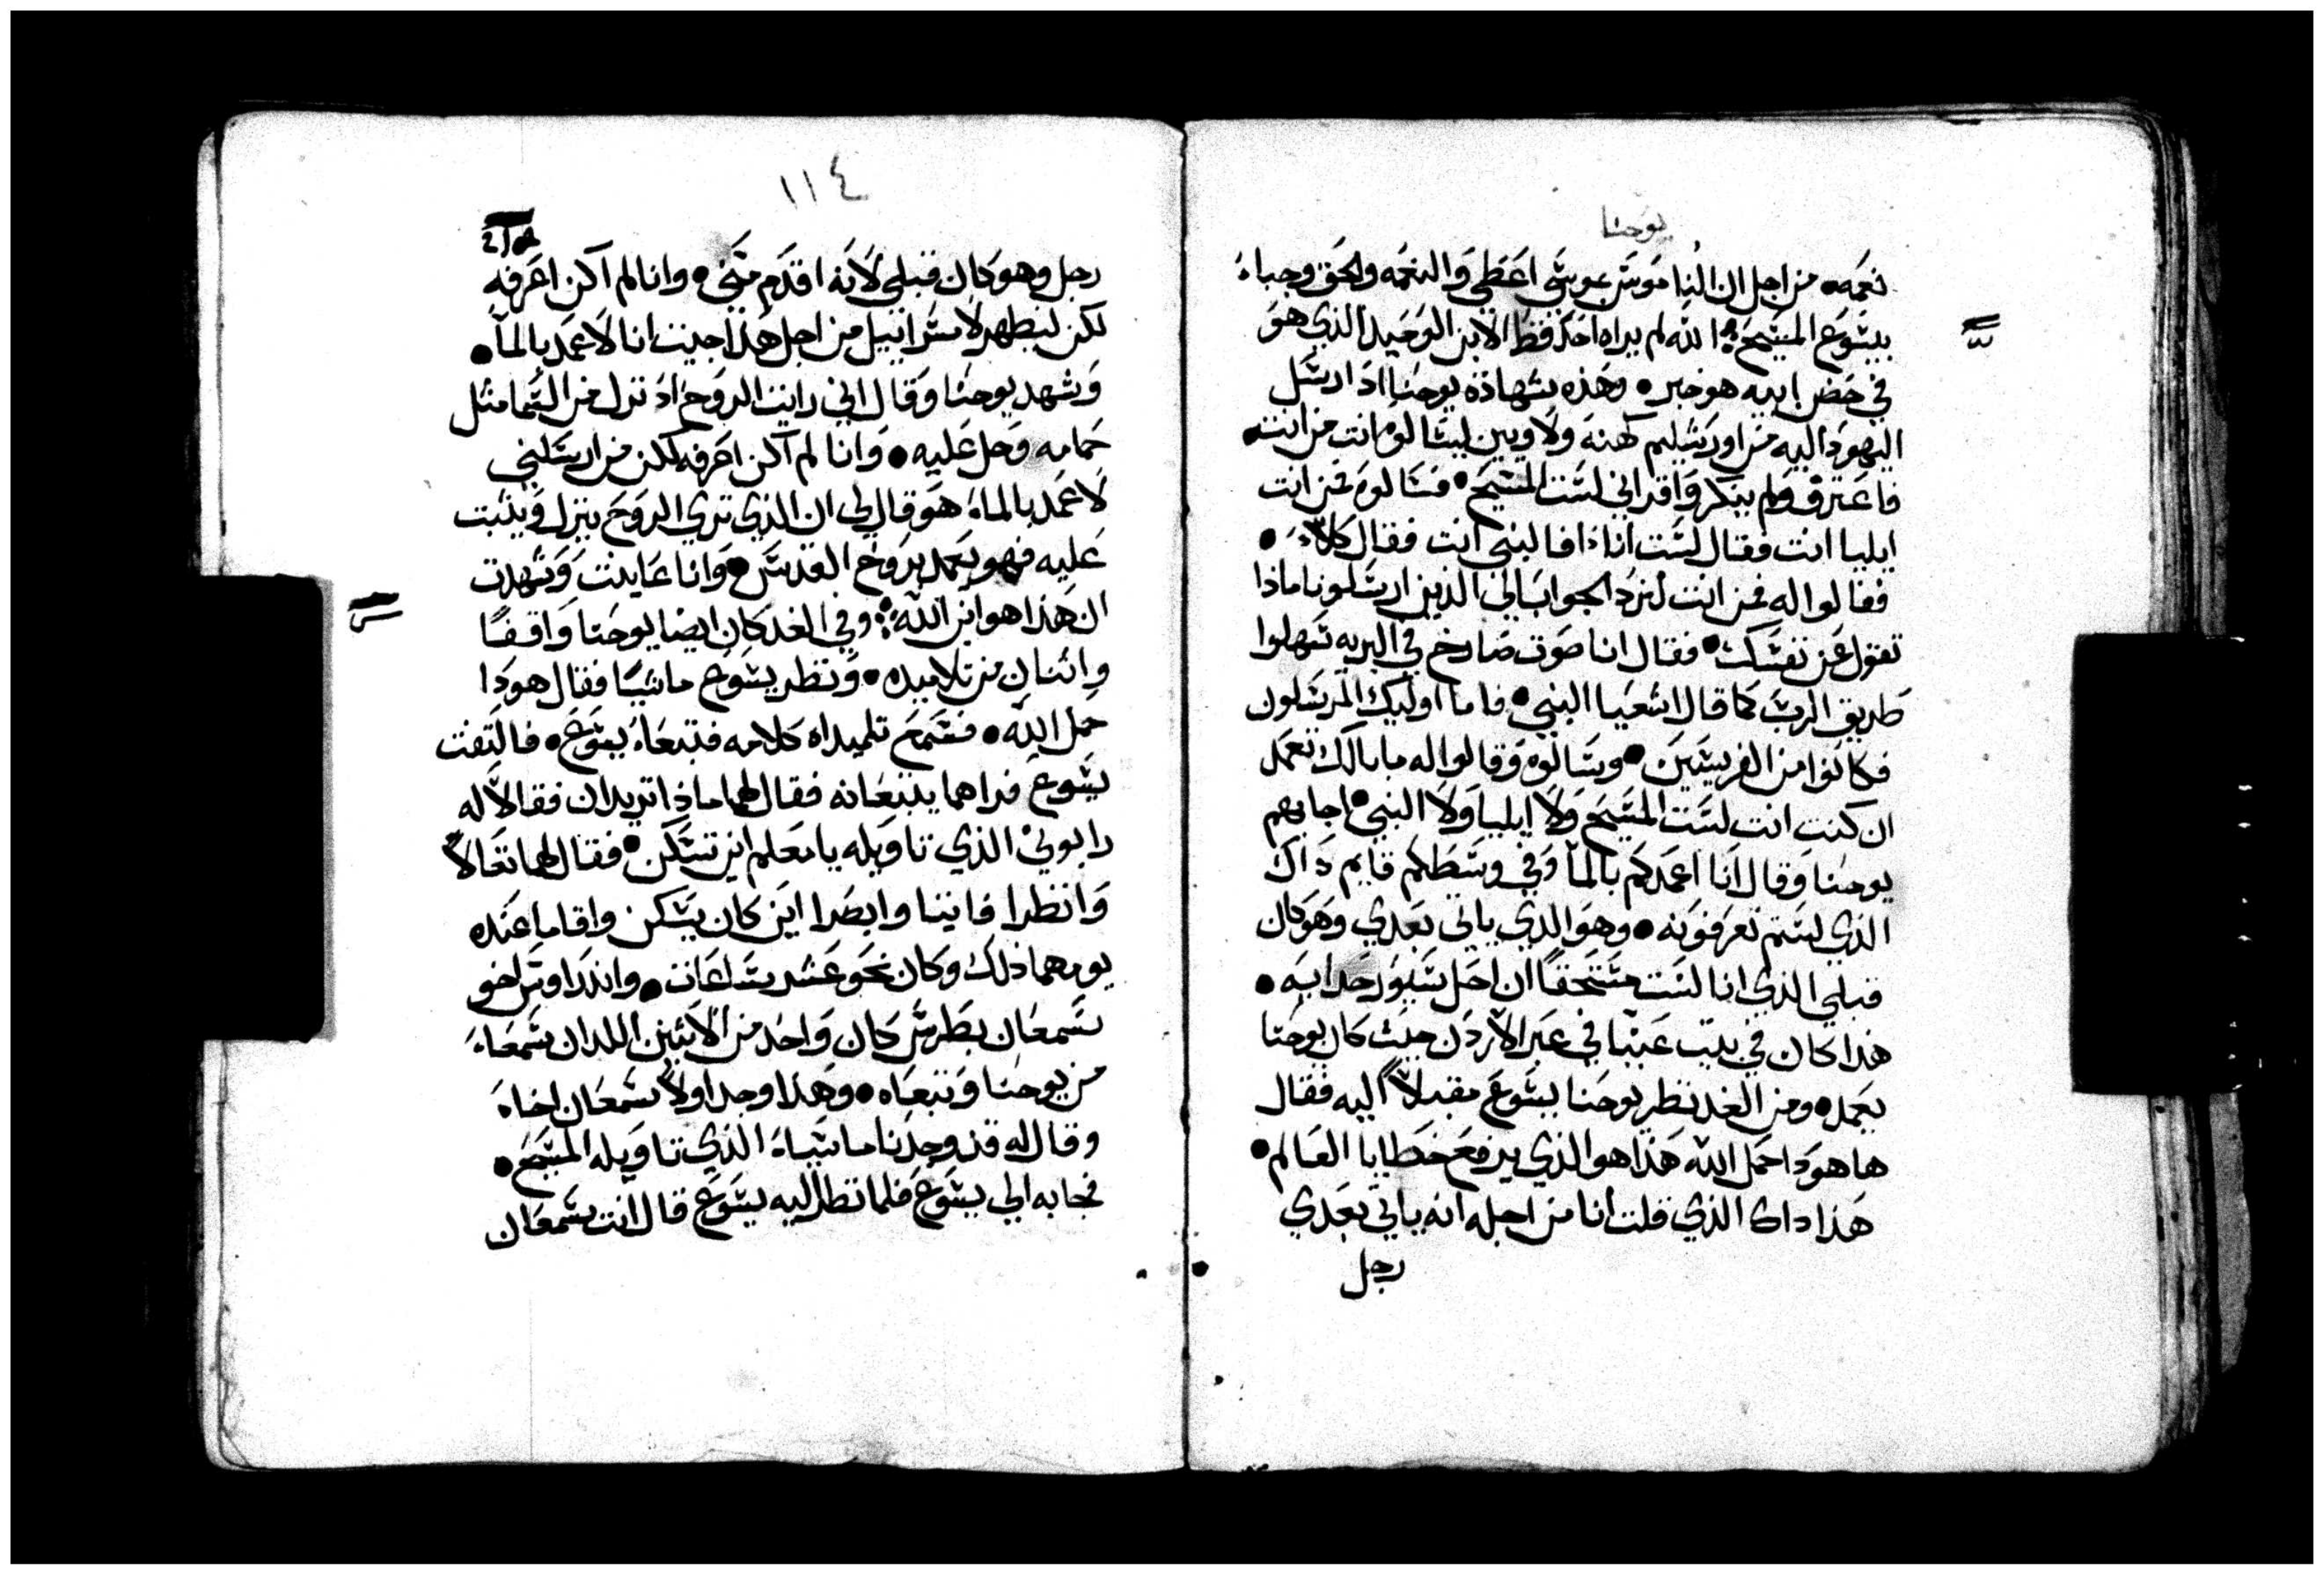 يوحنا
نعمه • من اجل ان الناموس بموسي اعطي والنعمه والحق وجباء
بيسوع المسيح الله لم يراه احد قط الابن الوحيد الذي هو
في حضن ابيه هو خبر • وهذه شهادة يوحنا اذ ارسل
اليهود اليه من اورشليم كهنه ولاويين ليسالوه انت من انت •
فاعترف ولم ينكر واقر اني لست المسيح • فسالوه فمن انت
ايليا انت فقال لست انا افالنبي انت فقال كلا •
فقالوا له فمن انت لنرد الجواب الي الذين ارسلونا ماذا
تقول عن نفسك • فقال انا صوت صارخ في البريه سهلوا
طريق الرب كما قال اشعيا النبي • فاما اوليك المرسلون
فكانوا من الفريسيين • وسالوه وقالوا له ما بالك تعمل
ان كنت انت لست المسيح ولا ايليا ولا النبي • اجابهم
يوحنا وقال انا اعمدكم بالما وفي وسطكم قايم داك
الذي لستم تعرفونه • وهو الذي ياتي بعدي وهو كان
قبلي الذي انا لست مستحقا ان احل سيور حدايه •
هذا كان في بيت عنيا في عبر الاردن حيث كان يوحنا
يعمد • ومن الغد نظر يوحنا يسوع مقبلا اليه فقال
ها هودا حمل الله هذا هو الذي يرفع خطايا العالم •
هذا داك الذي قلت انا من اجله انه ياتي بعدي
رجل
١١٤
رجل وهو كان قبلي لانه اقدم مني • وانا لم اكن اعرفه
لكن ليظهر لاسراييل من اجل هذا جيت انا لاعمد بالما •
وشهد يوحنا وقال اني رايت الروح اذ نزل من السما مثل
حمامه وحل عليه • وانا لم اكن اعرفه لكن من ارسلني
لاعمد بالماء هو قال لي ان الذي تري الروح ينزل ويثبت
عليه فهو يعمد بروح القدس • وانا عاينت وشهدت
ان هذا هو ابن الله وفي الغد كان ايضا يوحنا واقفا
واثنان من تلاميده • ونظر يسوع ماشيا فقال هودا
حمل الله • فسمع تلميداه كلامه فتبعاء يسوع • فالتفت
يسوع فراهما يتبعانه فقال لهما ماذا تريدان فقالا له
رابوني الذي تاويله يا معلم اين تسكن • فقال لهما تعالا
وانظرا فاتيا وابصرا اين كان يسكن واقاما عنده
يومهما ذلك وكان نحو عشر ساعات • واندراوس اخو
سمعان بطرس كان واحد من الاثنين اللدان سمعاء
من يوحنا وتبعاه • وهذا وجد اولا سمعان اخاه
وقال له قد وجدنا ماسياء الذي تاويله المسيح •
فجا به الي يسوع فلما نظر اليه يسوع قال انت سمعان